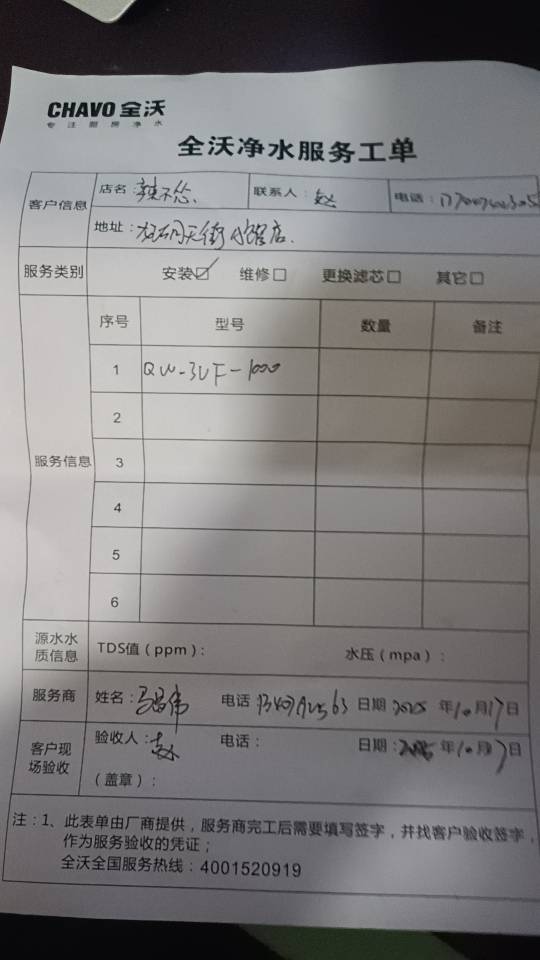 CHAVO 全沃
专注厨房净水
全沃净水服务工单
客户信息 店名：辣不怂 联系人：赵 电话：
地址：天街 店
服务类别 安装☑ 维修□ 更换滤芯□ 其它□
服务信息 序号 型号 数量 备注
1 QW-3UF-1000
2
3
4
5
6
源水水质信息 TDS值（ppm）： 水压（mpa）：
服务商 姓名：马昌伟 电话 日期 2025 年10月17日
客户现场验收 验收人：赵 电话： 日期：2025 年10月17日
（盖章）：
注：1、此表单由厂商提供，服务商完工后需要填写签字，并找客户验收签字，
作为服务验收的凭证；
全沃全国服务热线：4001520919